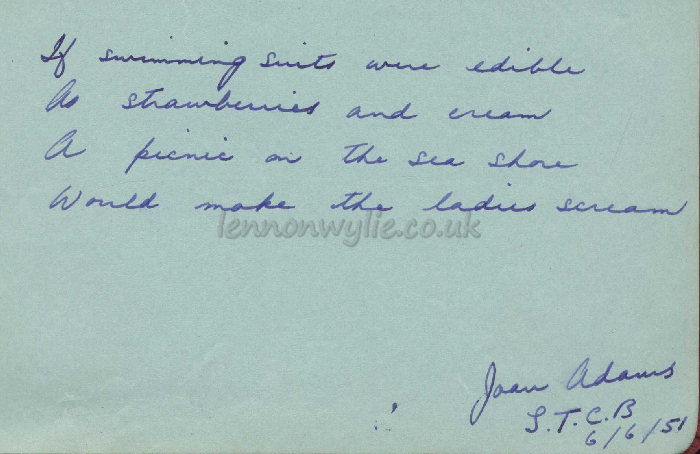 If swimming suits were edible
As strawberries and cream
A picnic on the sea shore
Would make the ladies scream
lennonwylie.co.uk
Joan Adams
S.T.C.B
6/6/51